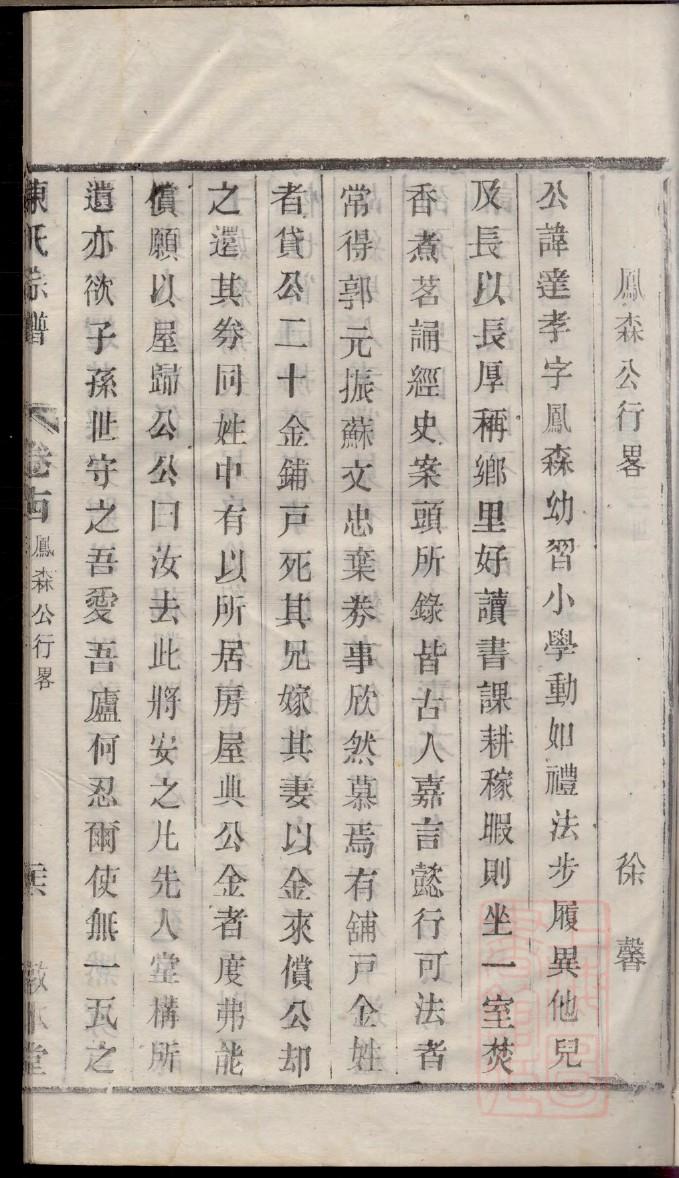 鳳森公行畧 徐馨
公諱達孝字鳳森幼習小學動如禮法步履異他兒
及長以長厚稱鄉里好讀書課耕稼暇則坐一室焚
香煮茗誦經史案頭所錄皆古人嘉言懿行可法者
常得郭元振蘇文忠棄券事欣然慕焉有舖戸金姓
者貸公二十金鋪戸死其兄嫁其妻以金來償公却
之還其券同姓中有以所居房屋典公金者度弗能
償願以屋歸公公曰汝去此將安之凡先人堂構所
遺亦欲子孫世守之吾愛吾廬何忍爾使無一瓦之
陳氏宗譜 卷 鳳森公行畧 堂